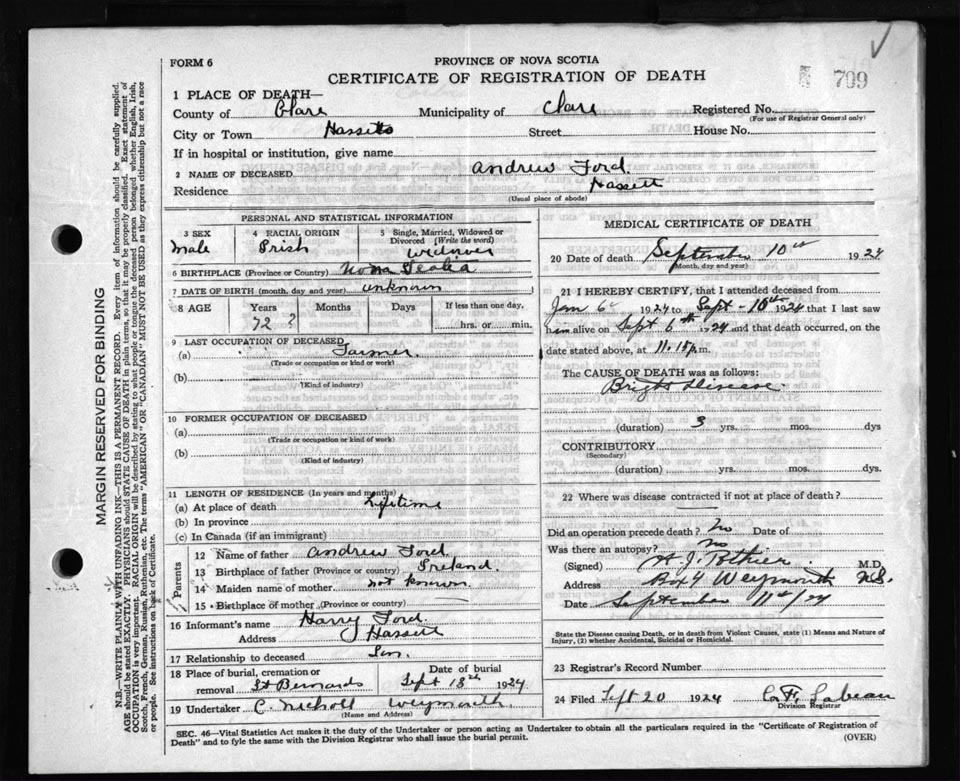 FORM 6
PROVINCE OF NOVA SCOTIA
CERTIFICATE OF REGISTRATION OF DEATH
709
1 PLACE OF DEATH—
County of Clare Municipality of Clare Registered No.
(For use of Registrar General only)
City or Town Hassetts Street House No.
If in hospital or institution, give name
2 NAME OF DECEASED Andrew Ford.
Residence Hassett
(Usual place of abode)
PERSONAL AND STATISTICAL INFORMATION
3 SEX
male
4 RACIAL ORIGIN
Irish
5 Single, Married, Widowed or Divorced (Write the word)
widower
6 BIRTHPLACE (Province or Country) Nova Scotia
7 DATE OF BIRTH (month, day and year) unknown
8 AGE Years Months Days If less than one day,
72 ? hrs. or min.
9 LAST OCCUPATION OF DECEASED
(a) Farmer.
(Trade or occupation or kind of work)
(b)
(Kind of industry)
10 FORMER OCCUPATION OF DECEASED
(a)
(Trade or occupation or kind of work)
(b)
(Kind of industry)
11 LENGTH OF RESIDENCE (In years and months)
(a) At place of death Lifetime
(b) In province
(c) In Canada (if an immigrant)
Parents
12 Name of father Andrew Ford.
13 Birthplace of father (Province or country) Ireland.
14 Maiden name of mother not known
15 Birthplace of mother (Province or country)
16 Informant's name Harry Ford
Address Hassett
17 Relationship to deceased Son.
18 Place of burial, cremation or removal St Bernards
Date of burial
Sept 13th 1924
19 Undertaker C. Nicholl Weymouth
(Name and Address)
MEDICAL CERTIFICATE OF DEATH
20 Date of death September 10th 1924
(Month, day and year)
21 I HEREBY CERTIFY, that I attended deceased from
Jan 6th 1924 to Sept - 10th 1924 that I last saw
him alive on Sept 6th 1924 and that death occurred, on the
date stated above, at 11.15 p.m.
The CAUSE OF DEATH was as follows:
Bright Disease
(duration) 3 yrs. mos. dys
CONTRIBUTORY
(Secondary)
(duration) yrs. mos. dys.
22 Where was disease contracted if not at place of death?
Did an operation precede death? No Date of
Was there an autopsy? No
(Signed) Pothier M.D.
Address Box 4 Weymouth N.S.
Date September 11th/24
State the Disease causing Death, or in death from Violent Causes, state (1) Means and Nature of
Injury, (2) whether Accidental, Suicidal or Homicidal.
23 Registrar's Record Number
24 Filed Sept 20 1924
Division Registrar
SEC. 46—Vital Statistics Act makes it the duty of the Undertaker or person acting as Undertaker to obtain all the particulars required in the "Certificate of Registration of
Death" and to fyle the same with the Division Registrar who shall issue the burial permit.
(OVER)
MARGIN RESERVED FOR BINDING
N.B.—WRITE PLAINLY WITH UNFADING INK—THIS IS A PERMANENT RECORD. Every item of information should be carefully supplied.
AGE should be stated EXACTLY. PHYSICIANS should STATE CAUSE OF DEATH in plain terms, so that it may be properly classified. Exact statement of
OCCUPATION is very important. RACIAL ORIGIN will be described by stating to what people or tongue the deceased person belonged whether English, Irish,
Scotch, French, German, Russian, Ruthenian, etc. The terms "AMERICAN" OR "CANADIAN" MUST NOT BE USED as they express citizenship but not a race
or people. See instructions on back of Certificate.